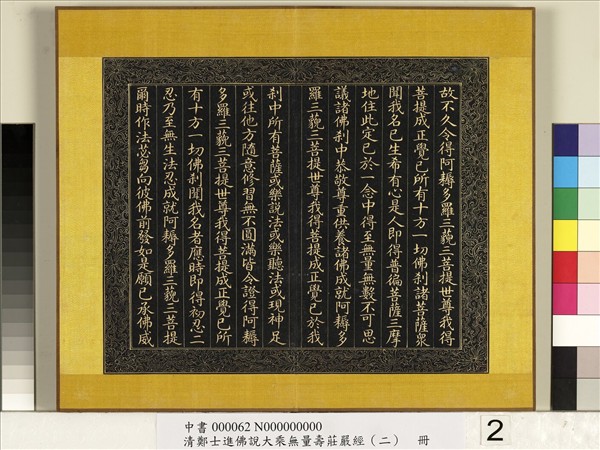 故不久令得阿耨多羅三藐三菩提世尊我得
菩提成正覺已所有十方一切佛剎諸菩薩衆
聞我名已生希有心是人即得普徧菩薩三摩
地住此定已於一念中得至無量無數不可思
議諸佛剎中恭敬尊重供養諸佛成就阿耨多
羅三藐三菩提世尊我得菩提成正覺已於我
剎中所有菩薩或樂說法或樂聽法或現神足
或往他方隨意修習無不圓滿皆令證得阿耨
多羅三藐三菩提世尊我得菩提成正覺已所
有十方一切佛剎聞我名者應時即得初忍二
忍乃至無生法忍成就阿耨多羅三藐三菩提
爾時作法苾芻向彼佛前發如是願已承佛威
中書 000062 N000000000
清鄭士進佛說大乘無量壽莊嚴經（二） 冊
2